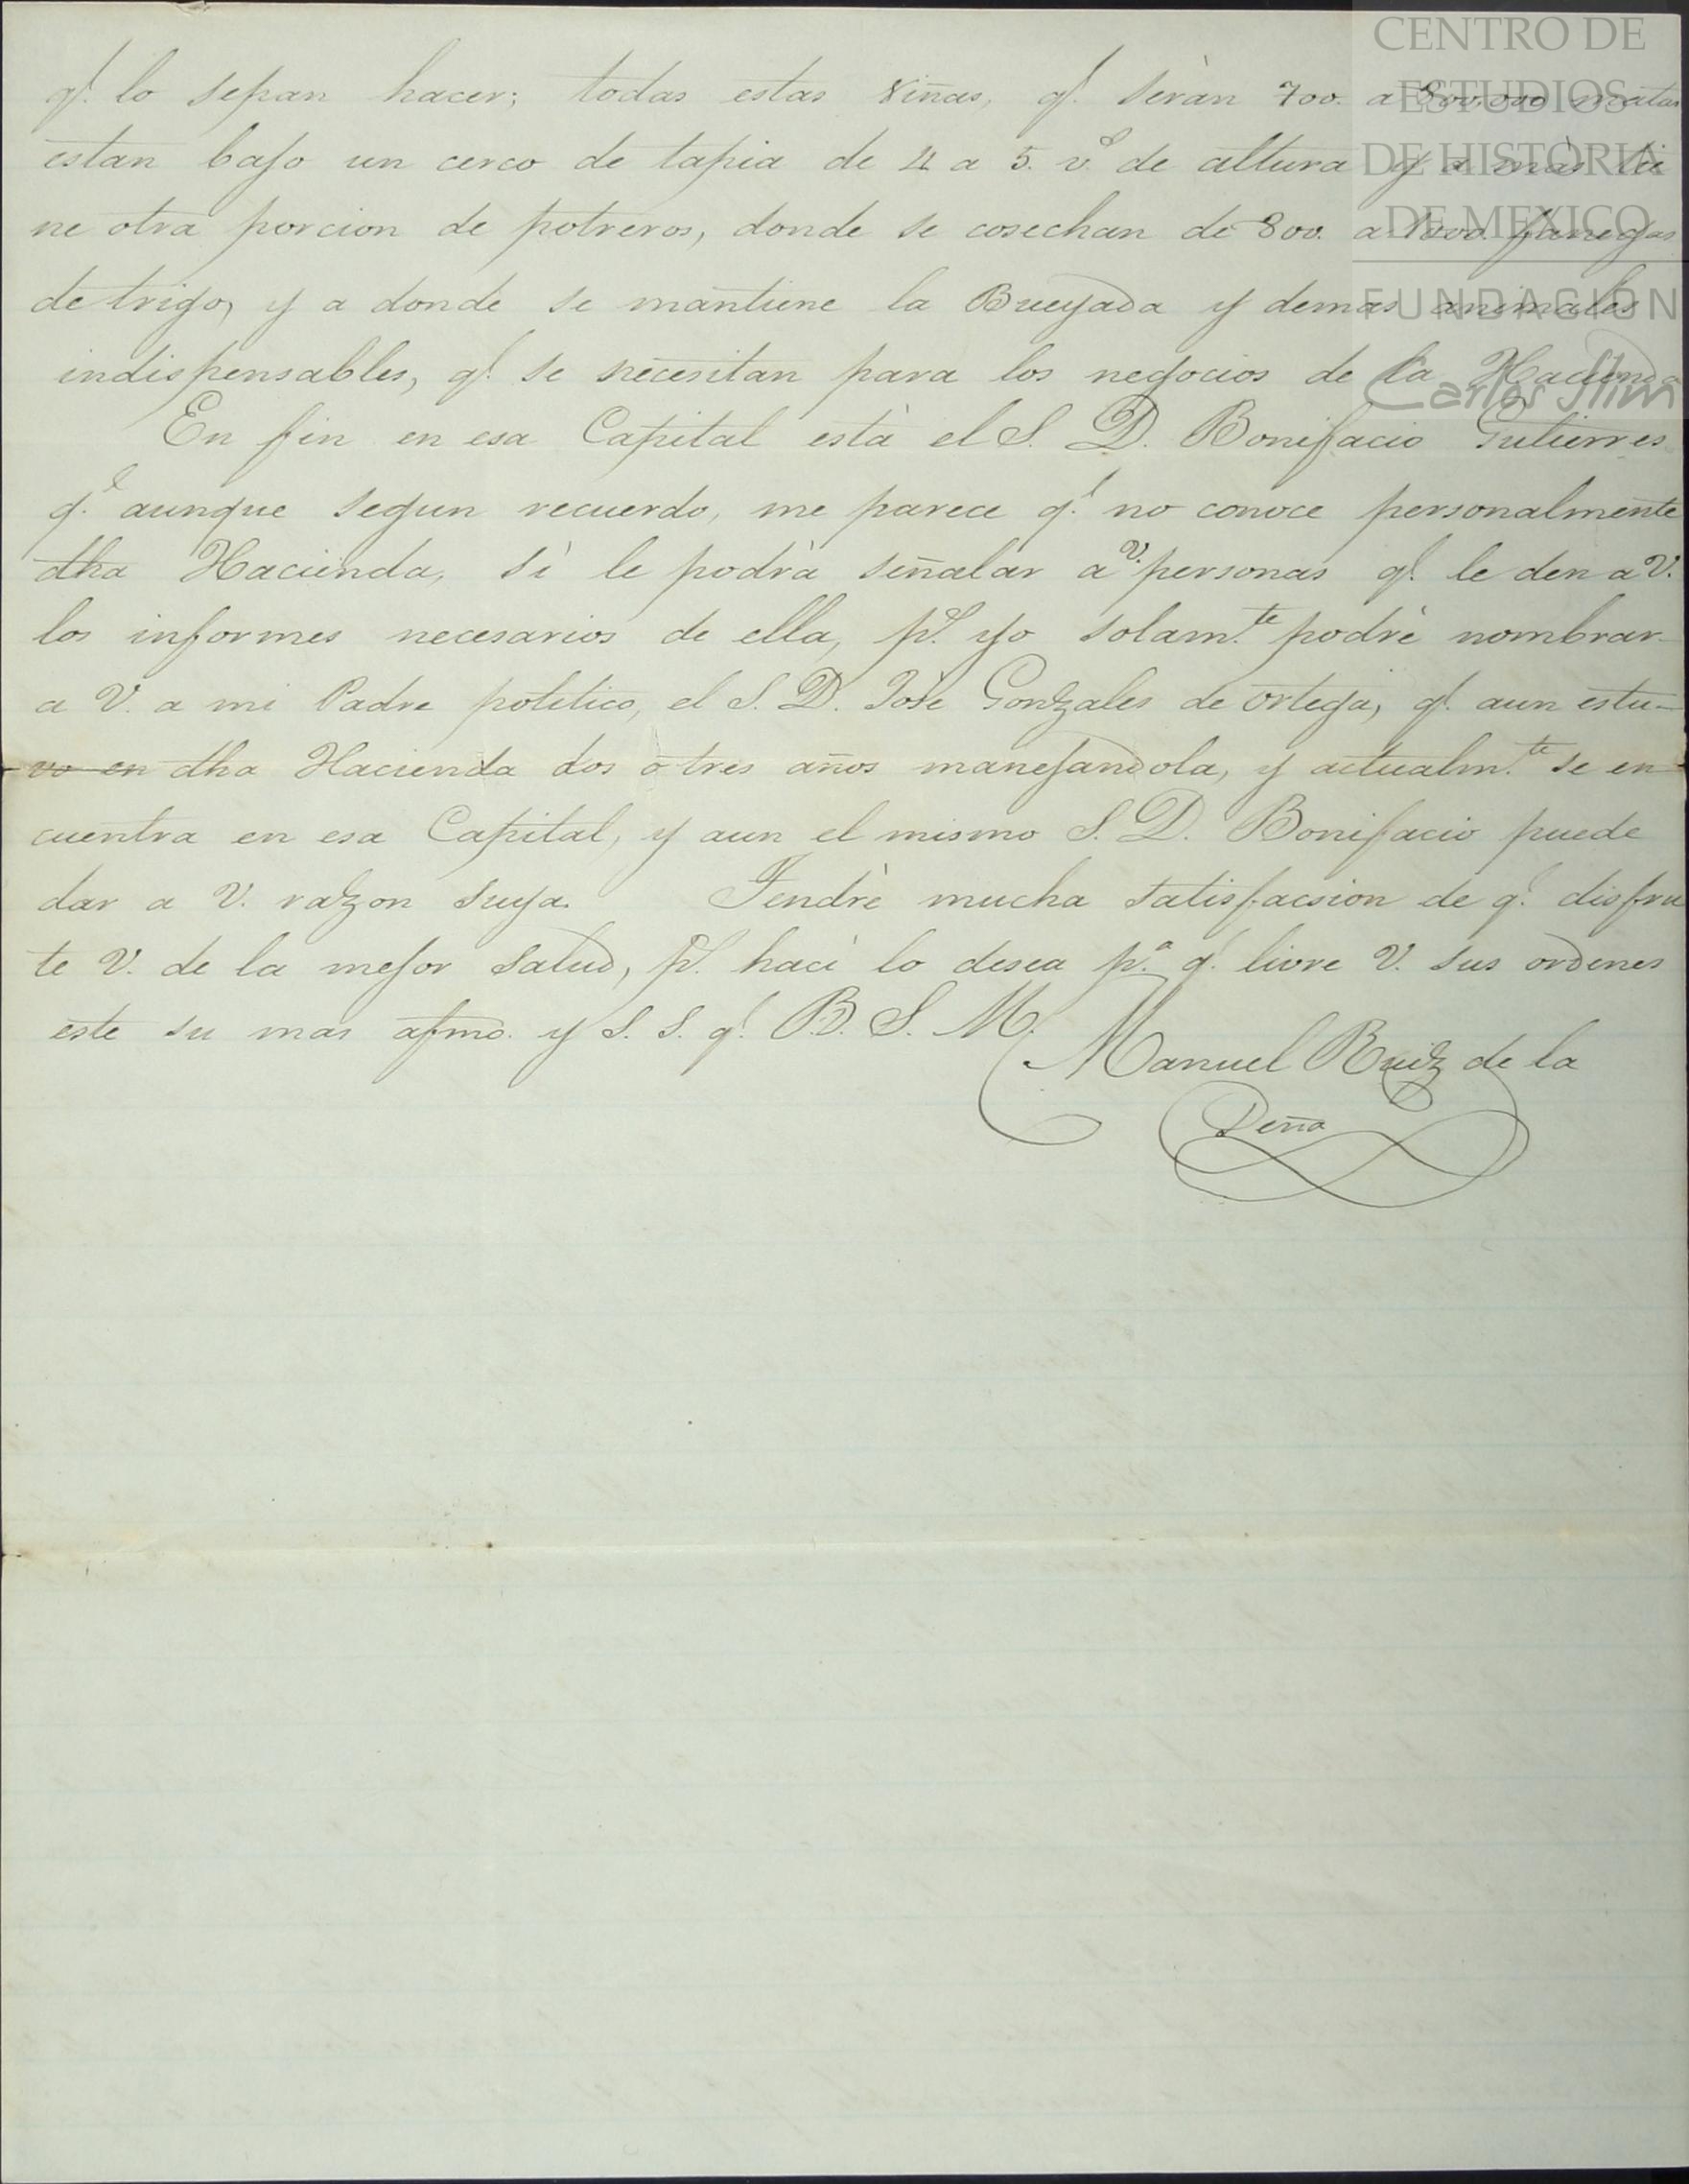 CENTRO DE
ESTUDIOS
DE HISTORIA
DE MEXICO
FUNDACION
Carlos Slim
q.e lo sepan hacer; todas estas viñas, q.e seràn 700. a 800.000 matas
estan bajo un cerco de tapia de 4 a 5. v.s de altura y a màs tie
ne otra porcion de potreros, donde se cosechan de 800. a 1000. fanegas
de trigo, y a donde se mantiene la Bueyada y demas animales
indispensables, q.e se necesitan para los negocios de la Hacienda
En fin en esa Capital està el S. D. Bonifacio Gutierres
q.e aunque segun recuerdo, me parece q.e no conoce personalmente
dha Hacienda, sì le podrà señalar a V. personas q.e le den a V.
los informes necesarios de ella, p.s yo solam.te podrè nombrar
a V. a mi Padre politico, el S. D. Josè Gonzales de Ortega, q.e aun estu-
vo en dha Hacienda dos ò tres años manejandola, y actualm.te se en
cuentra en esa Capital, y aun el mismo S. D. Bonifacio puede
dar a V. razon suya. Tendrè mucha satisfacsion de q.e disfru
te V. de la mejor salud, p.s haci lo desea p.a q.e livre V. sus ordenes
este su mas afmo. y S. S. q.e B. S. M.
Manuel Ruiz de la
Peña